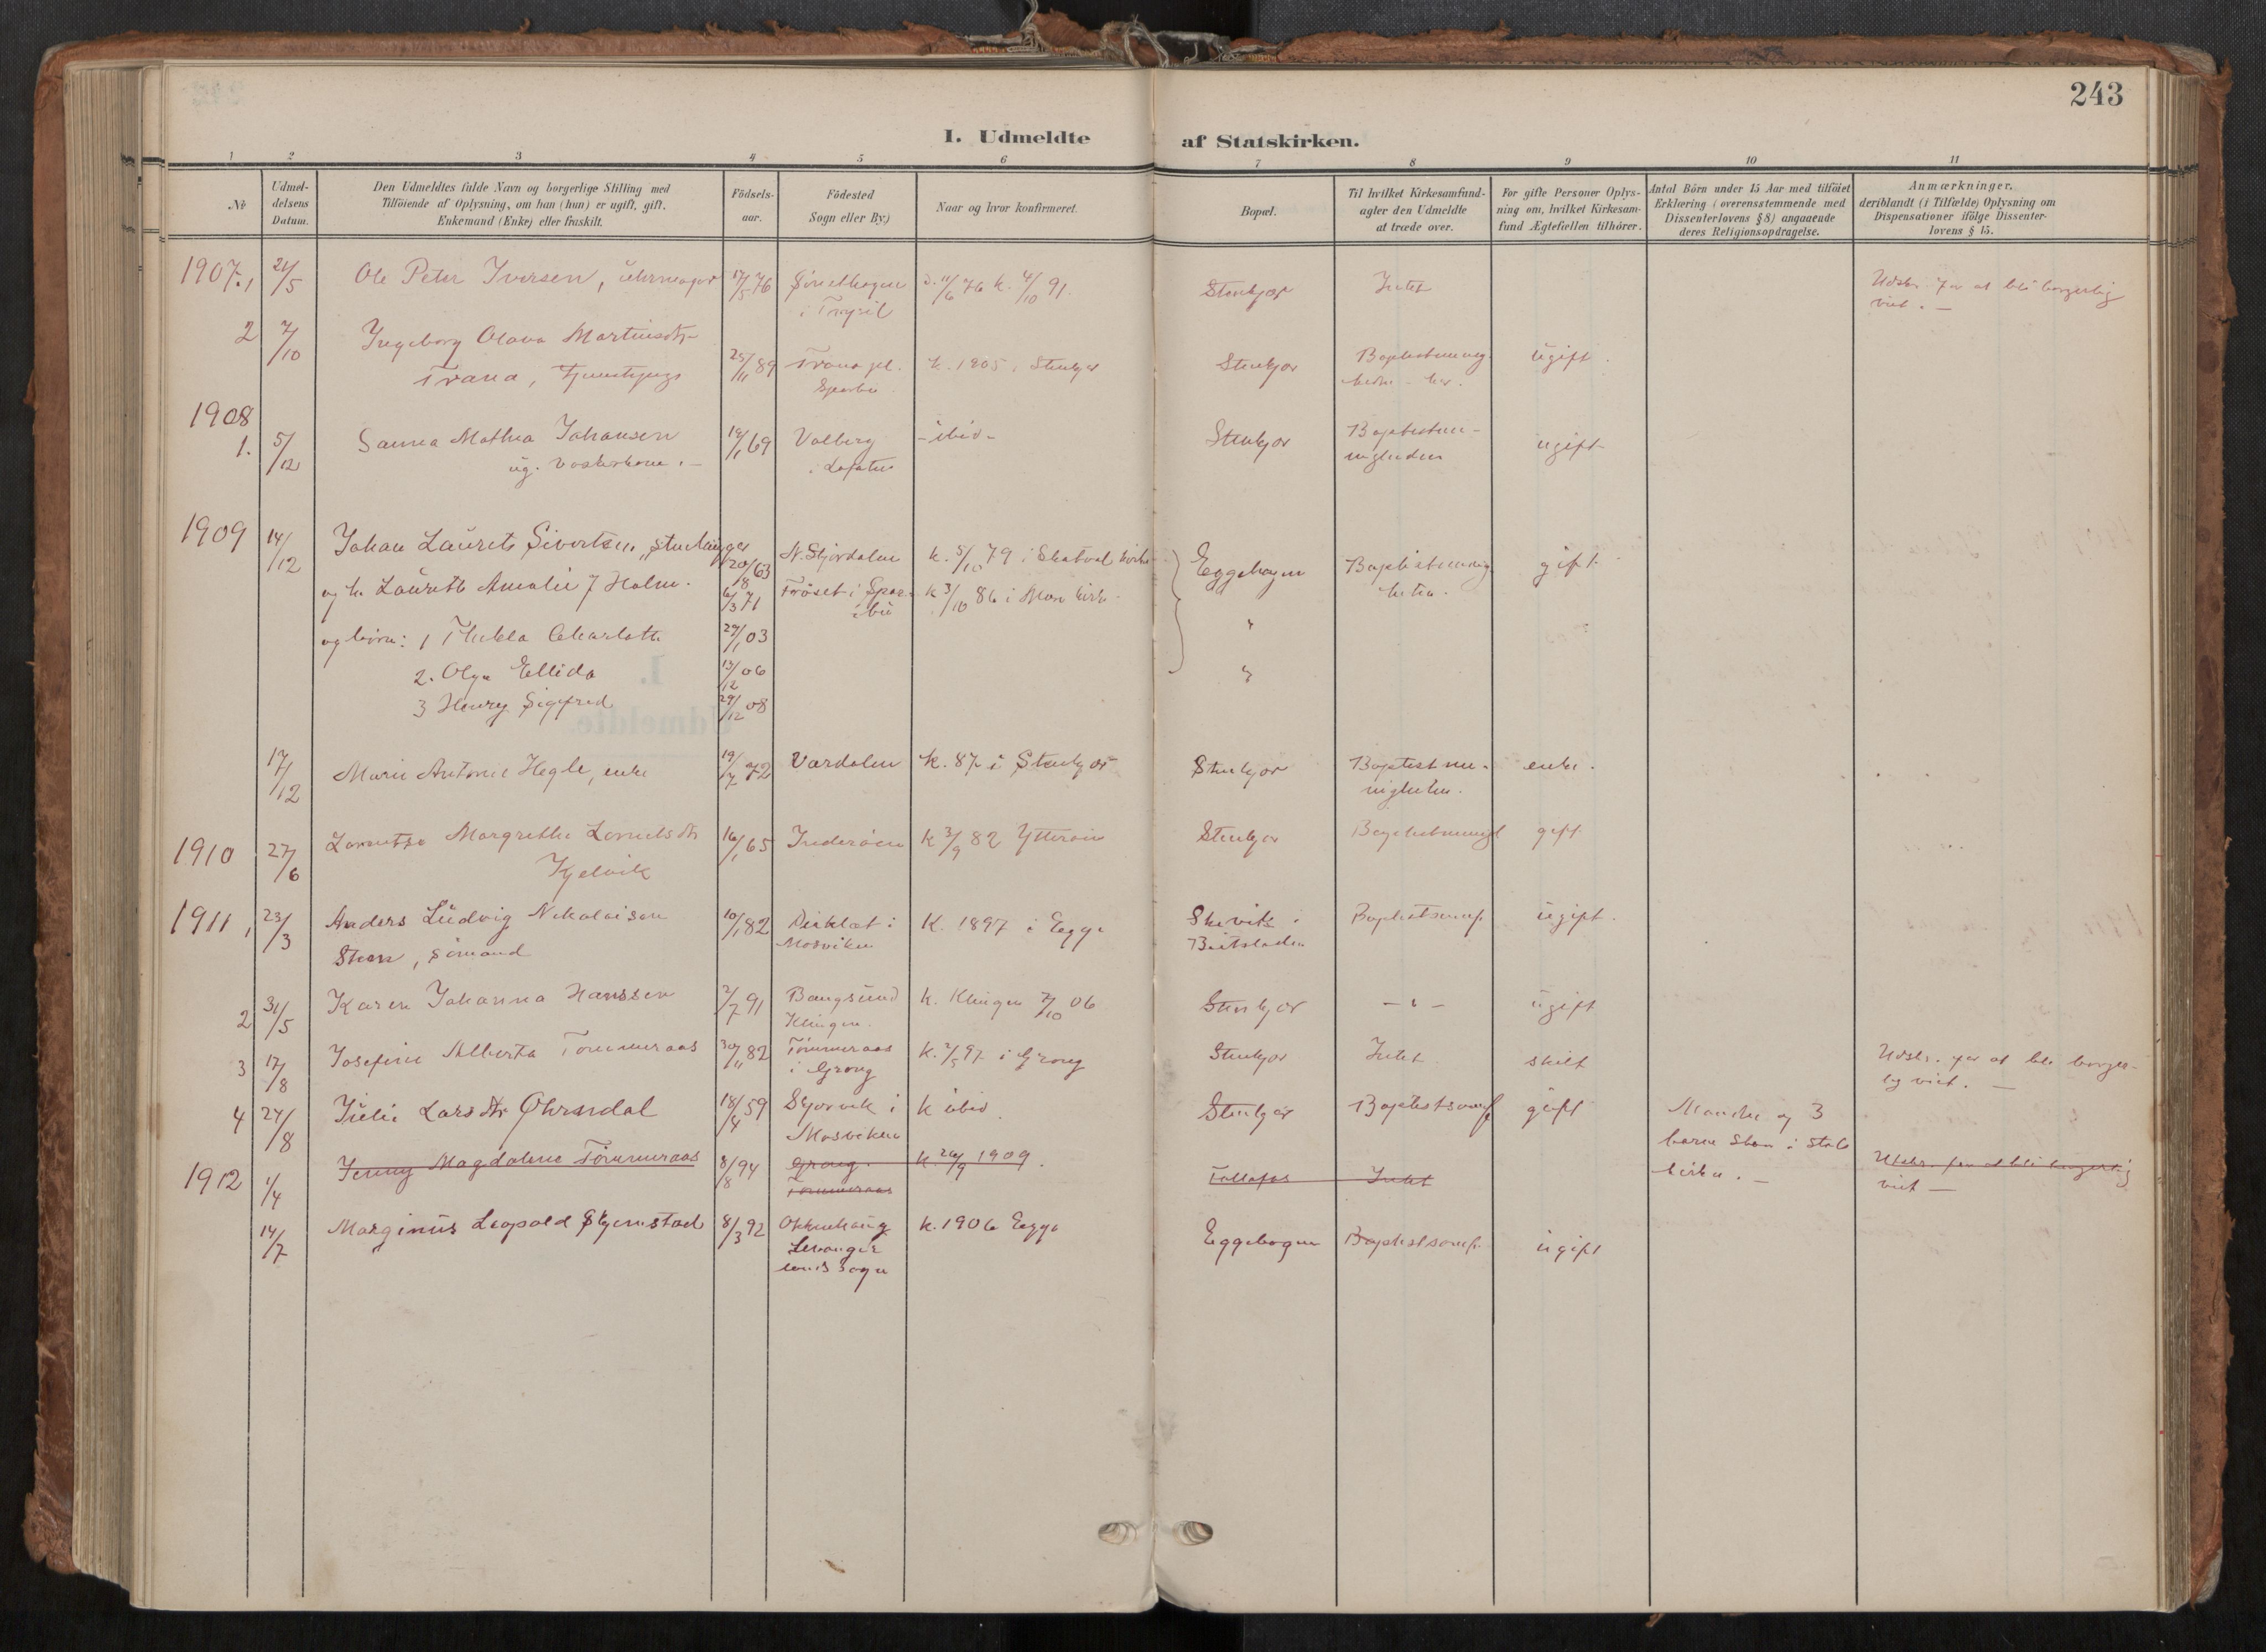 243
I. Udmeldte af Statskirken.
1 2 3 4 5 6 7 8 9 10 11
№
Udmel-
delsens
Datum.
Den Udmeldtes fulde Navn og borgerlige Stilling med
Tilföiende af Oplysning, om han (hun) er ugift, gift.
Enkemand (Enke) eller fraskilt.
Födsels-
aar.
Födested
Sogn eller By.)
Naar og hvor konfirmeret.
Bopæl.
Til hvilket Kirkesamfund-
agter den Udmeldte
at træde over.
For gifte Personer Oplys-
ning om, hvilket Kirkesam-
fund Ægtefællen tilhörer.
Antal Börn under 15 Aar med tilföiet
Erklæring (overensstemmende med
Dissenterlovens § 8) angaaende
deres Religionsopdragelse.
Anmærkninger.
deriblandt (i Tilfælde) Oplysning om
Dispensationer ifölge Dissenter-
lovens § 15.
1907. 1 21/5 Ole Peter Iversen, uhrmager 17/5 76
i Trysil
d. 11/6 76 k. 4/10 91.
Stenkjær Intet
Udskr. for at bli borgerlig
viet. —
2 7/10 Ingeborg Olava Martinsdtr
Trana, 25/11 89 Trana pl.
Sparbu
k. 1905 i Stenkjær
Stenkjær ugift.
1908
1. 5/12 Sanna Mathea Johansen 19/1 69 Valberg
ug. vaskekone. — i Lofoten
– ibid –
Stenkjær Baptistme-
nigheden ugift
1909 14/12 Johan Laurits Sivertsen, 20/8 63 N. Stjørdalen k. 5/10 79 i Skatval kirke
og h. Laurette Amalie J Holm. 6/3 71 Frøset i Spar-
bu
k 3/10 86 i Mære kirke
Eggebogen Baptistmenig-
heten. gift
og børn: 1 Thekla Charlotte 29/1 03 "
2. Olga Ellida 13/12 06 "
3 Henry Sigfred 29/12 08
17/12 Marie Antonie Hegle, enke 19/7 72 Værdalen k. 87 i Stenkjær
Stenkjær Baptistme-
nigheten. enke.
1910 27/6 Lorentse Margrethe Lorentsdtr 16/1 65 Inderøen k 3/9 82 Ytterøen
Kjelvik
Stenkjær Baptistmenigh gift
1911, 23/3 Anders Ludvig Nikolaisen 10/1 82
Steen, sömand Mosviken
K. 1897 i Egge
Skevik i
Beitstaden
Baptistsamf. ugift.
2 31/5 Karen Johanna Hanssen 2/7 91 Bangsund
Klingen.
k. Klingen 7/10 06
Stenkjær – " – ugift
3 17/8 Josefine Alberta Tömmeraas 30/11 82 Tömmeraas
i Grong
k. 2/5 97 i Grong
Stenkjær Intet skilt
Udskr. for at bli borger-
lig viet. —
4 27/8 Julie Larsdtr Øhrndal 18/4 59 Skjervik i
Mosviken
k ibid.
Stenkjær Baptistsamf gift
Manden og 3
barn staar i stats
kirken. —
1912 1/4 Jenny Magdalene Tömmeraas 8/8 94 Grong.
Tömmeraas
k. 26/9 1909.
Follafos Intet
Udskr. for at bli borgerlig
viet —
14/7 Marginus Leopold Skjemstad 8/3 92 Okkenhaug
Levanger
landssogn
k. 1906 Egge
Eggebogen Baptistsamf. ugift